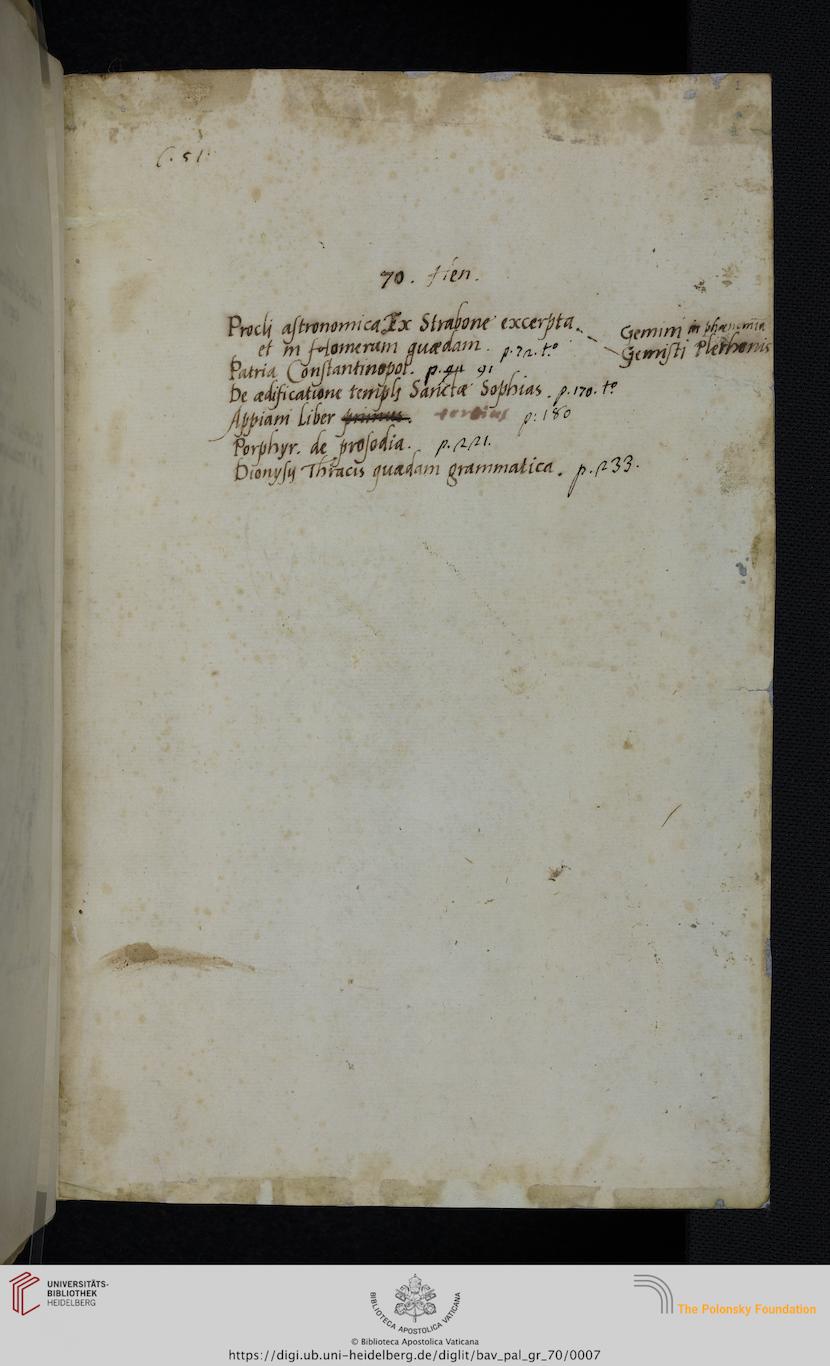 C. 51.
70. Hen.
Procli astronomica Ex Strabone excerpta. Gemini in phænomena
et in ptolomeum quædam. p. 72. t.º Gemisti Plethonis
Patria Constantinopol. p. 91
De ædificatione templi Sanctæ Sophias. p. 170. t.º
Appiani Liber primus. tertius p. 180
Porphyr. de prosodia. p. 221.
Dionysij Thracis quædam grammatica. p. 233.
UNIVERSITÄTS-
BIBLIOTHEK
HEIDELBERG
BIBLIOTECA APOSTOLICA VATICANA
The Polonsky Foundation
© Biblioteca Apostolica Vaticana
https://digi.ub.uni-heidelberg.de/diglit/bav_pal_gr_70/0007